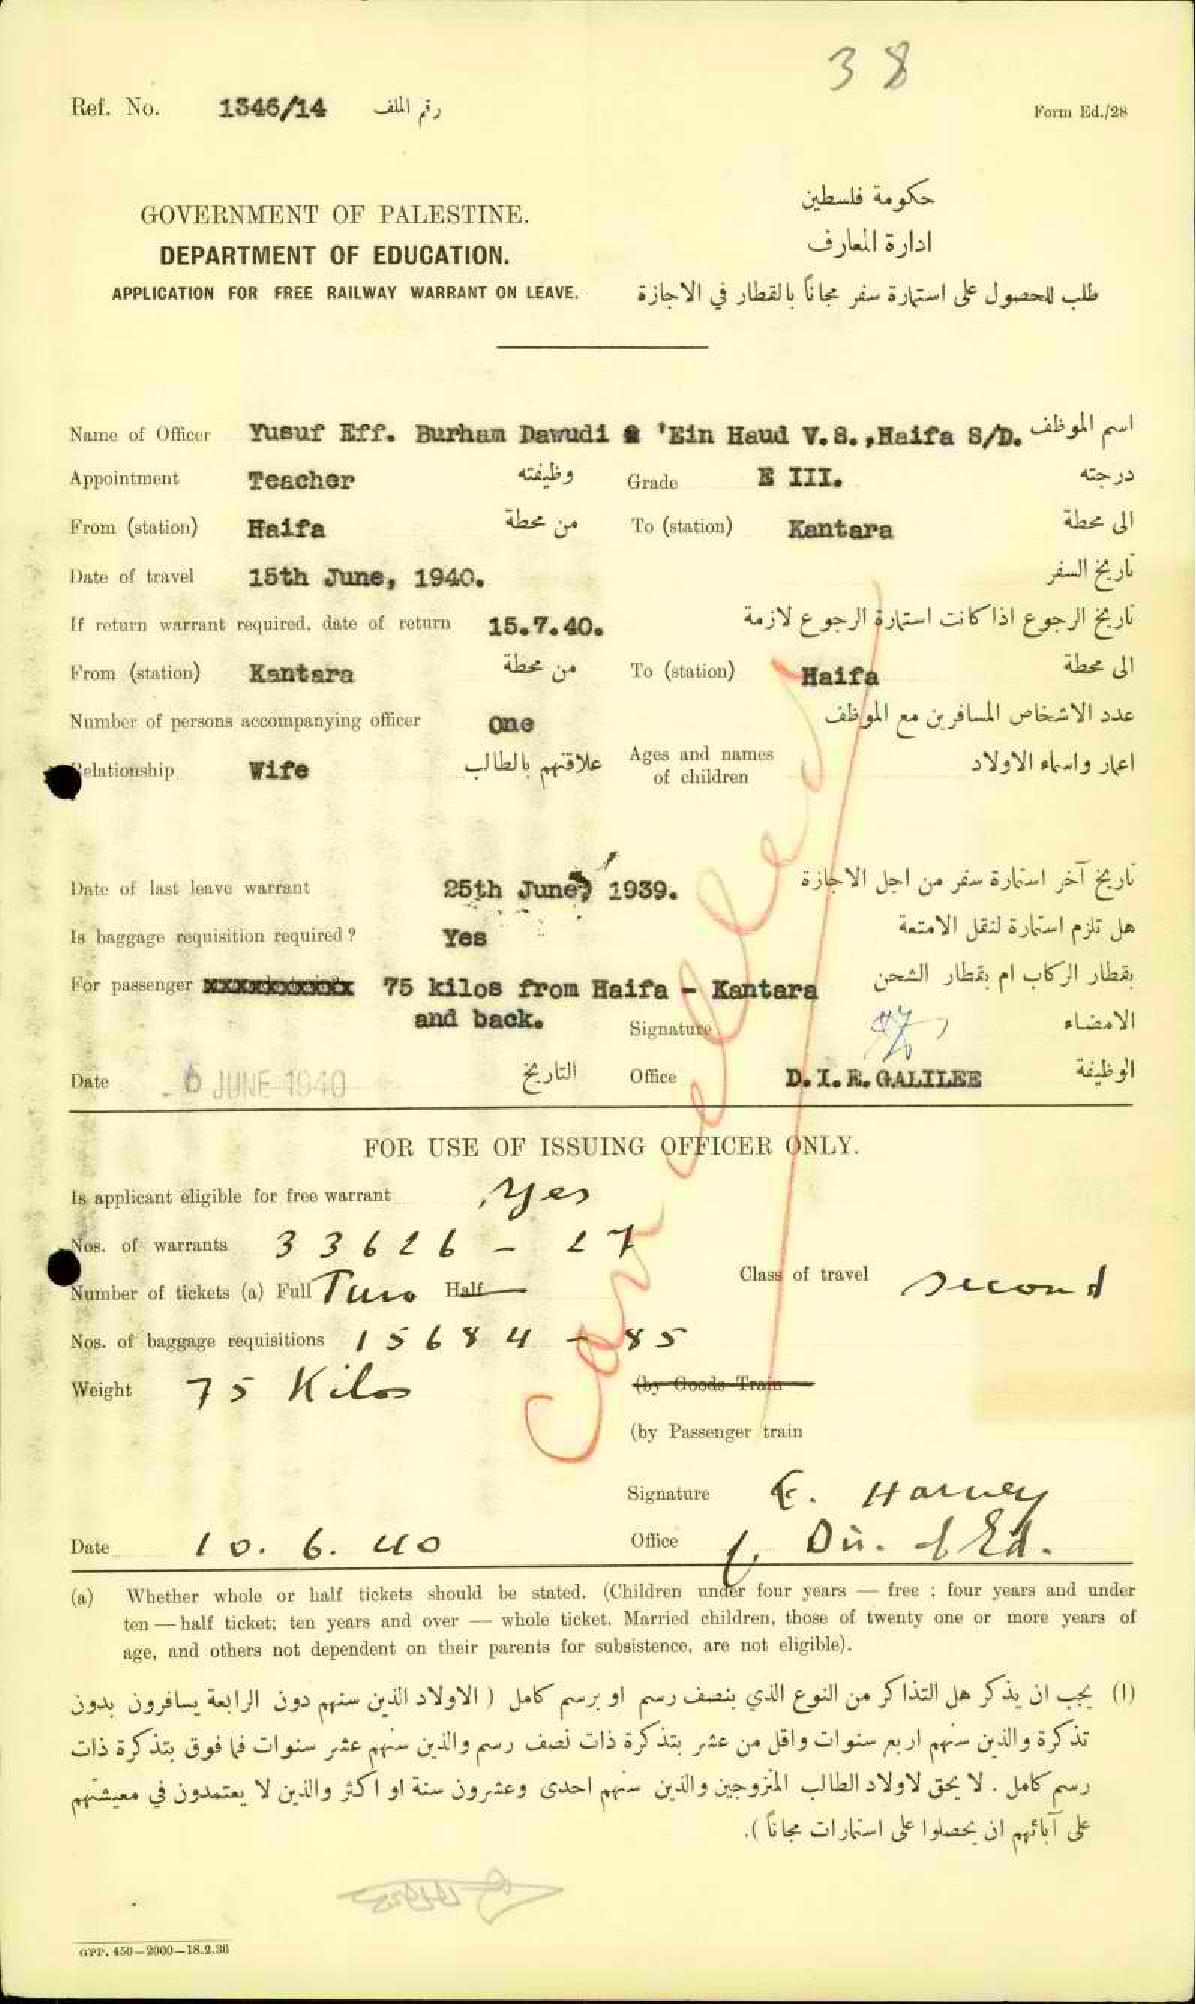 38
Ref. No. 1346/14 رقم الملف
Form Ed./28
GOVERNMENT OF PALESTINE.
DEPARTMENT OF EDUCATION.
APPLICATION FOR FREE RAILWAY WARRANT ON LEAVE.
حكومة فلسطين
ادارة المعارف
طلب للحصول على استمارة سفر مجاناً بالقطار في الاجازة
Name of Officer Yusuf Eff. Burham Dawudi & 'Ein Haud V.S.,Haifa S/D. اسم الموظف
Appointment Teacher وظيفته Grade E III. درجته
From (station) Haifa من محطة To (station) Kantara الى محطة
Date of travel 15th June, 1940. تاريخ السفر
If return warrant required, date of return 15.7.40. تاريخ الرجوع اذا كانت استمارة الرجوع لازمة
From (station) Kantara من محطة To (station) Haifa الى محطة
Number of persons accompanying officer One عدد الاشخاص المسافرين مع الموظف
Relationship Wife علاقتهم بالطالب Ages and names of children اعمار واسماء الاولاد
Date of last leave warrant 25th June, 1939. تاريخ آخر استمارة سفر من اجل الاجازة
Is baggage requisition required? Yes هل تلزم استمارة لنقل الامتعة
For passenger 75 kilos from Haifa - Kantara بقطار الركاب ام بقطار الشحن
and back. Signature الامضاء
Date - 6 JUNE 1940 التاريخ Office D.I.E. GALILEE الوظيفة
Cancelled
FOR USE OF ISSUING OFFICER ONLY.
Is applicant eligible for free warrant Yes
Nos. of warrants 33626 - 27
Number of tickets (a) Full Two Half Class of travel second
Nos. of baggage requisitions 15684 - 85
Weight 75 Kilos (by Goods Train
(by Passenger train
Signature E. Harvey
Date 10.6.40 Office f. Dir. of Ed.
(a) Whether whole or half tickets should be stated. (Children under four years — free ; four years and under
ten — half ticket; ten years and over — whole ticket. Married children, those of twenty one or more years of
age, and others not dependent on their parents for subsistence, are not eligible).
(ا) يجب ان يذكر هل التذاكر من النوع الذي بنصف رسم او برسم كامل ( الاولاد الذين سنهم دون الرابعة يسافرون بدون
تذكرة والذين سنهم اربع سنوات واقل من عشر بتذكرة ذات نصف رسم والذين سنهم عشر سنوات فما فوق بتذكرة ذات
رسم كامل . لا يحق لاولاد الطالب المتزوجين والذين سنهم احدى وعشرون سنة او اكثر والذين لا يعتمدون في معيشتهم
على آبائهم ان يحصلوا على استمارات مجاناً ).
GPP. 450—2000—18.2.36